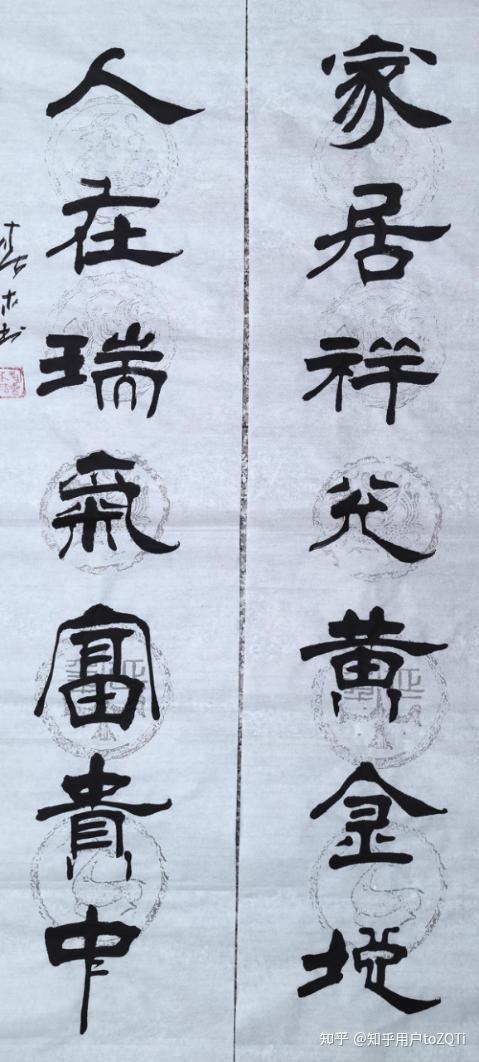 家居祥光黄金地
人在瑞氣富貴中
知乎 @知乎用户toZQTi